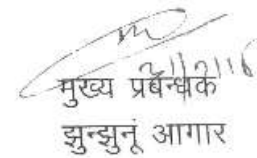 मुख्य प्रबन्धक
झुन्झुनूं आगार